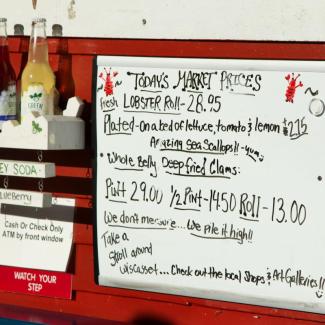 TODAY'S MARKET PRICES
fresh LOBSTER ROLL - 28.95
Plated - on a bed of lettuce, tomato & lemon
Amazing Sea Scallops!! - yum
• Whole Belly Deep fried Clams:
Pint 29.00 1/2 Pint - 14.50 ROLL - 13.00
We don't measure... We pile it high!!
• Take a
Stroll around
Wiscasset... Check out the local Shops & Art Galleries!!
GREEN
EY SODA
BlueBerry
Cash Or Check Only
ATM by front window
WATCH YOUR
STEP